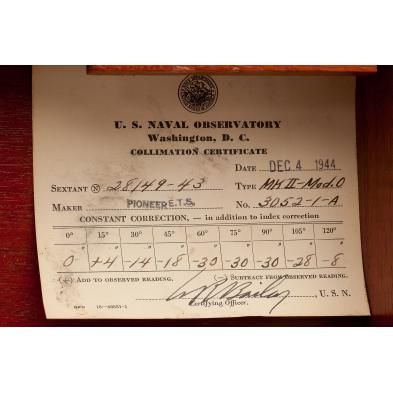 U. S. NAVAL OBSERVATORY
Washington, D. C.
COLLIMATION CERTIFICATE
DATE DEC 4 1944
SEXTANT N 28149-43 TYPE MK II-Mod.0
MAKER PIONEER E.T.S. No. 3052-1-A
CONSTANT CORRECTION, — in addition to index correction
0° 15° 30° 45° 60° 75° 90° 105° 120°
" " " " " " " " "
0 +4 -14 -18 -30 -30 -30 -28 -8
(+) ADD TO OBSERVED READING. (-) SUBTRACT FROM OBSERVED READING.
Bailey, U. S. N.
Certifying Officer.